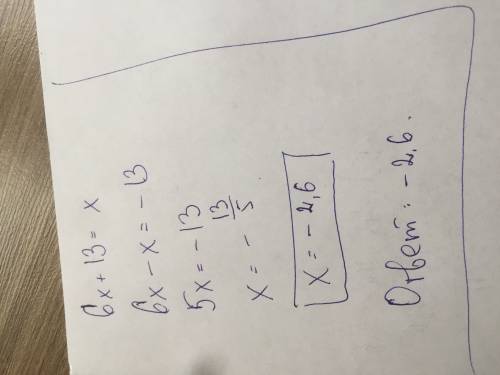 6x + 13 = x
6x - x = - 13
5x = - 13
x = - 13/5
x = - 2,6
Ответ: - 2,6.